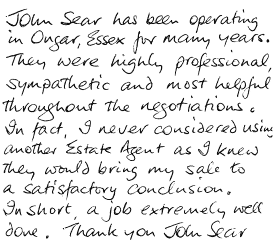 John Sear has been operating
in Ongar, Essex for many years.
They were highly professional,
sympathetic and most helpful
throughout the negotiations.
In fact, I never considered using
another Estate Agent as I knew
they would bring my sale to
a satisfactory conclusion.
In short, a job extremely well
done. Thank you John Sear